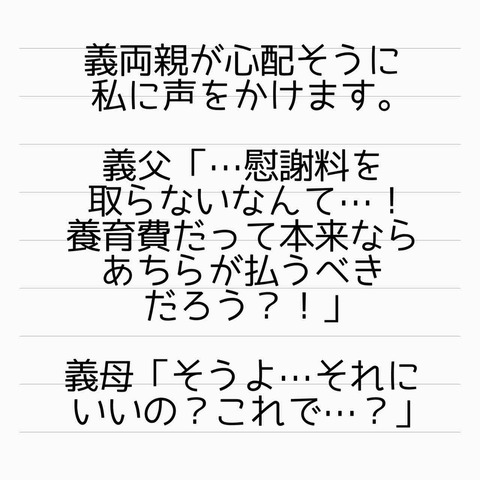 義両親が心配そうに
私に声をかけます。
義父「…慰謝料を
取らないなんて…！
養育費だって本来なら
あちらが払うべき
だろう？！」
義母「そうよ…それに
いいの？これで…？」